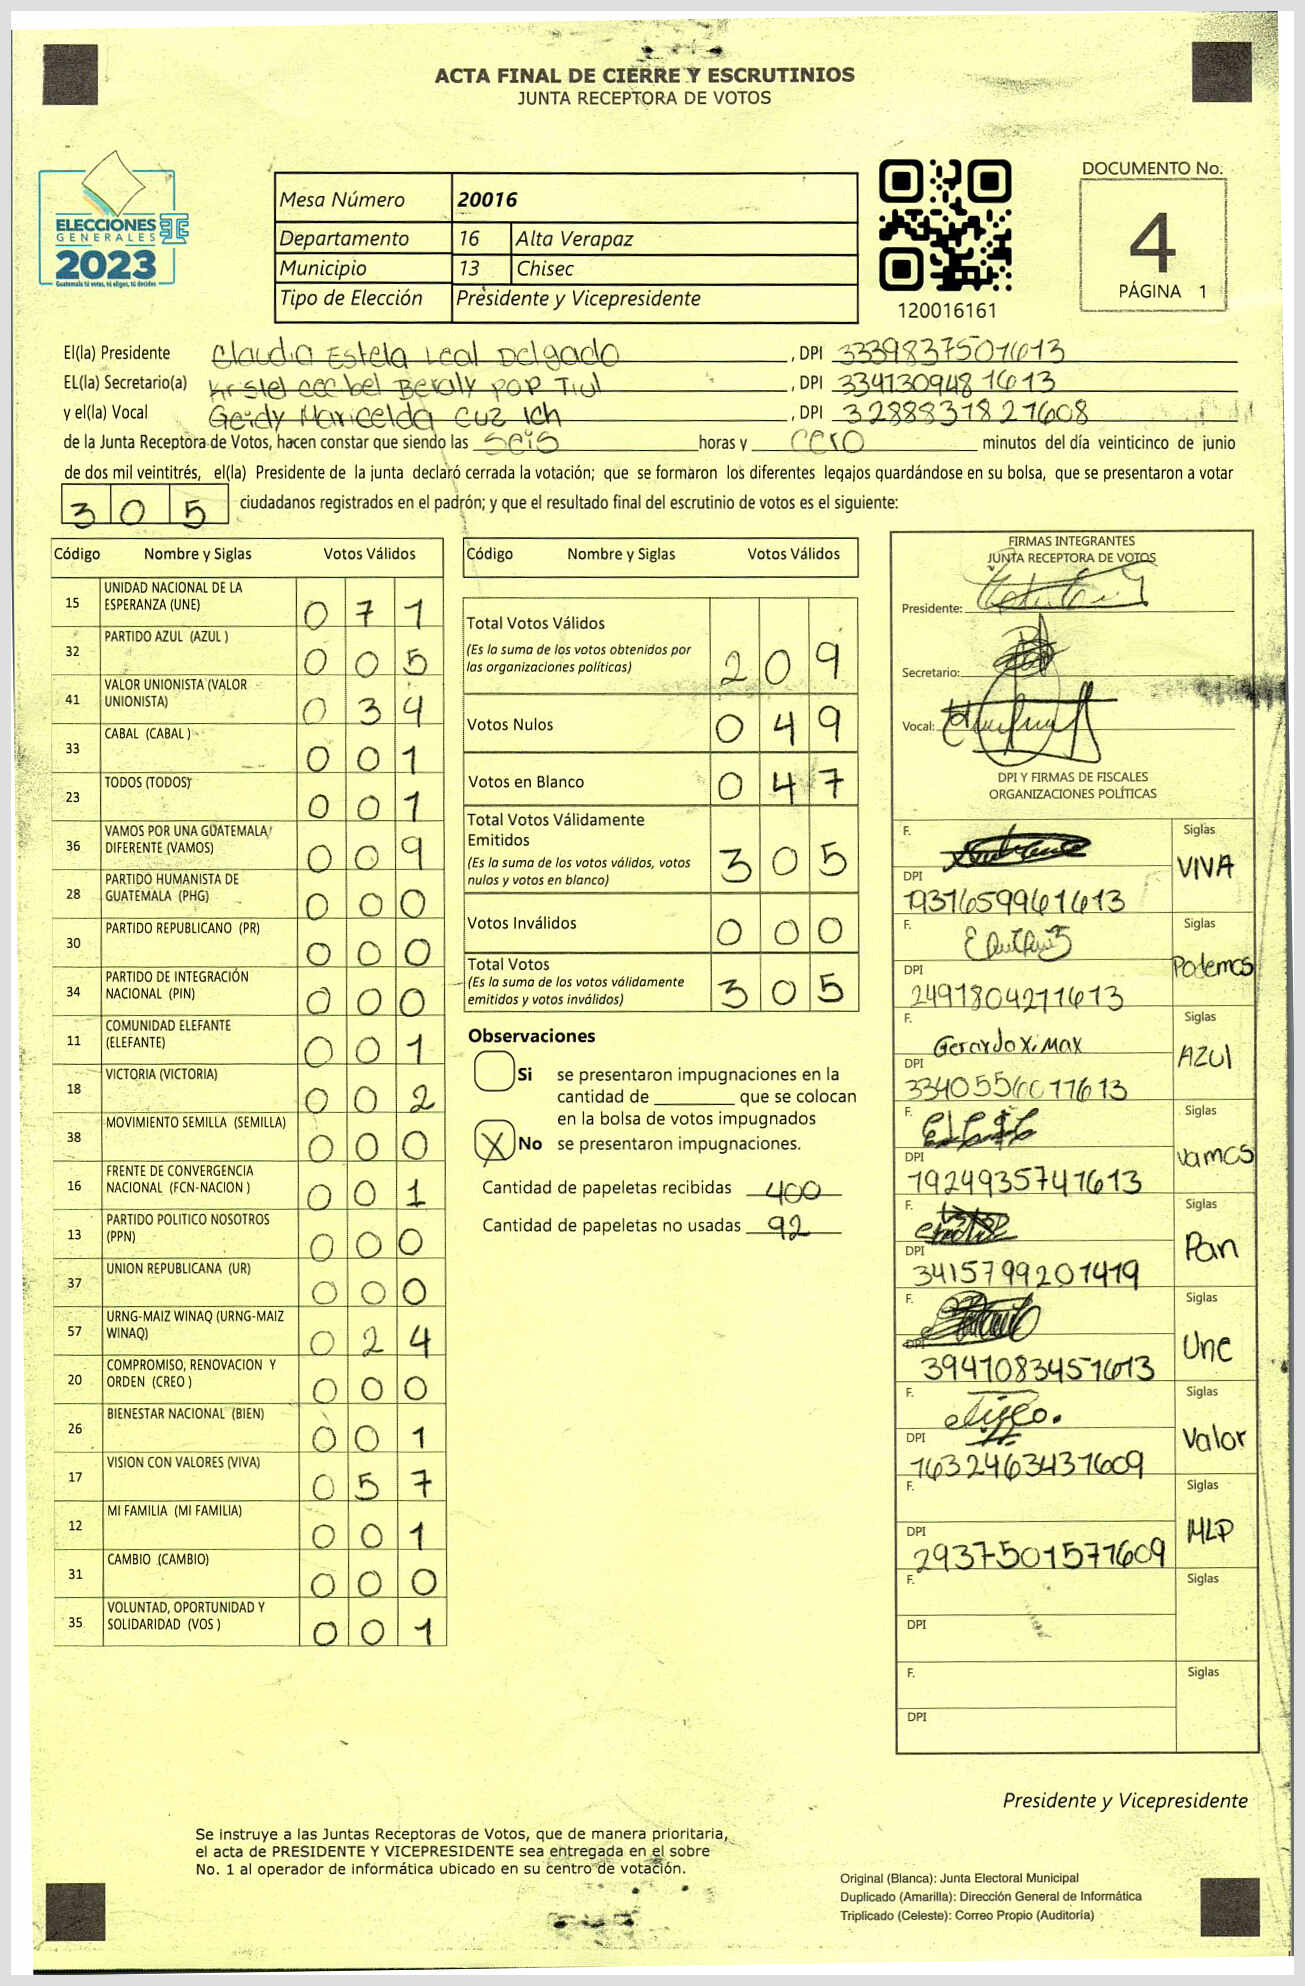 ACTA FINAL DE CIERRE Y ESCRUTINIOS
JUNTA RECEPTORA DE VOTOS
ELECCIONES
GENERALES
2023
Guatemala tú votas, tú eliges, tú decides
Mesa Número 20016
Departamento 16 Alta Verapaz
Municipio 13 Chisec
Tipo de Elección Presidente y Vicepresidente
120016161
DOCUMENTO No.
4
PÁGINA 1
El(la) Presidente Claudia Estela Leal Delgado, DPI 3339837501613
EL(la) Secretario(a) Kristel Beraly Pop Tiul, DPI 3341309481613
y el(la) Vocal Geidy Maricelda Cuz Ich, DPI 3288831821608
de la Junta Receptora de Votos, hacen constar que siendo las seis horas y cero minutos del día veinticinco de junio
de dos mil veintitrés, el(la) Presidente de la junta declaró cerrada la votación; que se formaron los diferentes legajos quardándose en su bolsa, que se presentaron a votar
305 ciudadanos registrados en el padrón; y que el resultado final del escrutinio de votos es el siguiente:
Código Nombre y Siglas Votos Válidos
15 UNIDAD NACIONAL DE LA ESPERANZA (UNE) 071
32 PARTIDO AZUL (AZUL ) 005
41 VALOR UNIONISTA (VALOR UNIONISTA) 034
33 CABAL (CABAL ) 001
23 TODOS (TODOS) 001
36 VAMOS POR UNA GUATEMALA DIFERENTE (VAMOS) 009
28 PARTIDO HUMANISTA DE GUATEMALA (PHG) 000
30 PARTIDO REPUBLICANO (PR) 000
34 PARTIDO DE INTEGRACIÓN NACIONAL (PIN) 000
11 COMUNIDAD ELEFANTE (ELEFANTE) 001
18 VICTORIA (VICTORIA) 002
38 MOVIMIENTO SEMILLA (SEMILLA) 000
16 FRENTE DE CONVERGENCIA NACIONAL (FCN-NACION ) 001
13 PARTIDO POLITICO NOSOTROS (PPN) 000
37 UNION REPUBLICANA (UR) 000
57 URNG-MAIZ WINAQ (URNG-MAIZ WINAQ) 024
20 COMPROMISO, RENOVACION Y ORDEN (CREO ) 000
26 BIENESTAR NACIONAL (BIEN) 001
17 VISION CON VALORES (VIVA) 057
12 MI FAMILIA (MI FAMILIA) 001
31 CAMBIO (CAMBIO) 000
35 VOLUNTAD, OPORTUNIDAD Y SOLIDARIDAD (VOS ) 001
Código Nombre y Siglas Votos Válidos
Total Votos Válidos 209
(Es la suma de los votos obtenidos por
las organizaciones políticas)
Votos Nulos 049
Votos en Blanco 047
Total Votos Válidamente
Emitidos 305
(Es la suma de los votos válidos, votos
nulos y votos en blanco)
Votos Inválidos 000
Total Votos 305
(Es la suma de los votos válidamente
emitidos y votos inválidos)
Observaciones
Si se presentaron impugnaciones en la
cantidad de ________ que se colocan
en la bolsa de votos impugnados
X No se presentaron impugnaciones.
Cantidad de papeletas recibidas 400
Cantidad de papeletas no usadas 92
FIRMAS INTEGRANTES
JUNTA RECEPTORA DE VOTOS
Presidente:
Secretario:
Vocal:
DPI Y FIRMAS DE FISCALES
ORGANIZACIONES POLÍTICAS
F. Siglas VIVA
DPI 1931659961613
F. Siglas Podemos
DPI 2491804211613
F. Gerardo Xi Max Siglas AZUl
DPI
F. Siglas Vamos
DPI 1924935741613
F. Siglas Pan
DPI 3415799201419
F. Siglas Une
DPI 3941083451613
F. Siglas Valor
DPI 1632463431609
F. Siglas MLP
DPI 2937501571609
F. Siglas
DPI
F. Siglas
DPI
Presidente y Vicepresidente
Se instruye a las Juntas Receptoras de Votos, que de manera prioritaria,
el acta de PRESIDENTE Y VICEPRESIDENTE sea entregada en el sobre
No. 1 al operador de informática ubicado en su centro de votación.
Original (Blanca): Junta Electoral Municipal
Duplicado (Amarilla): Dirección General de Informática
Triplicado (Celeste): Correo Propio (Auditoría)